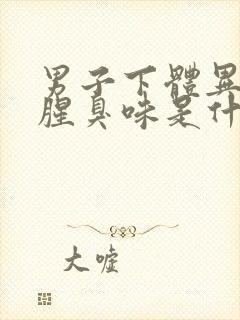 男子下體異
腥臭味是什
大噓